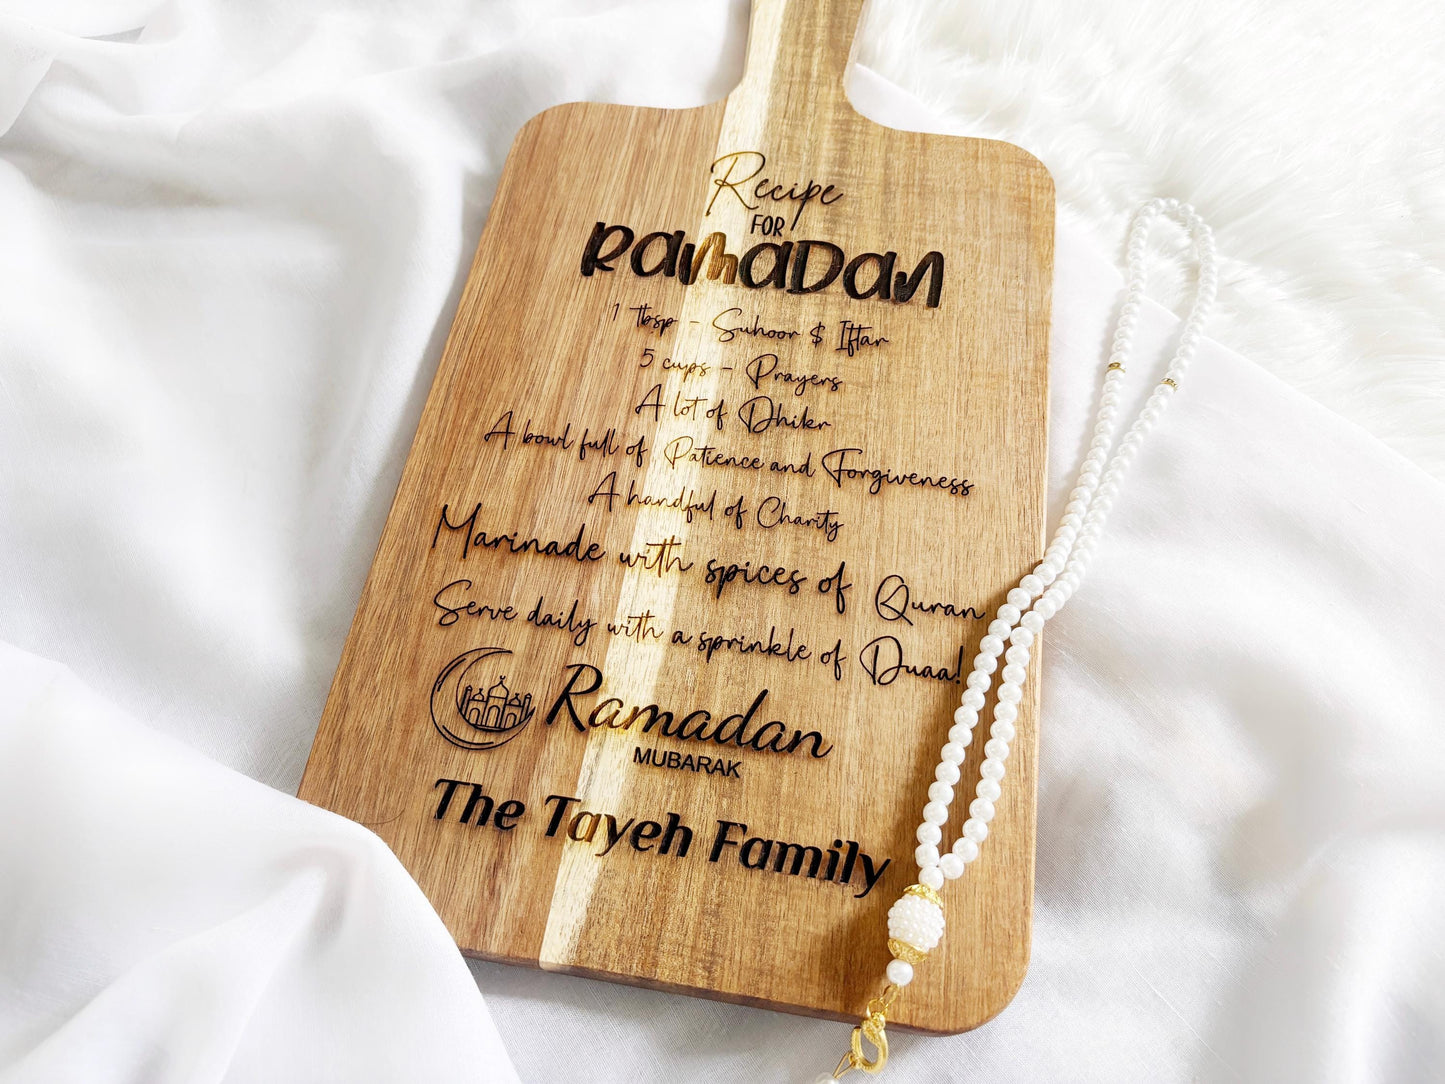 Recipe
FOR
RAMADAN
1 tbsp - Suhoor & Iftar
5 cups - Prayers
A lot of Dhikr
A bowl full of Patience and Forgiveness
A handful of Charity
Marinade with spices of Quran
Serve daily with a sprinkle of Duaa!
Ramadan
MUBARAK
The Tayeh Family